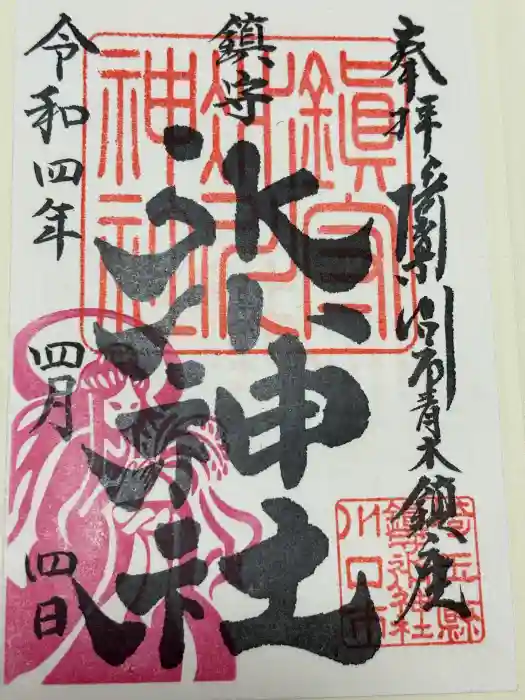 奉拝 埼玉県川口市青木鎮座
鎮守
氷川神社
令和四年
四月
四日
鎮守
氷川
神社
埼玉縣
鎮守氷川神社
川口市